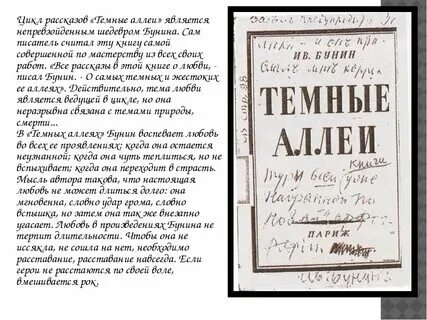 Цикл рассказов «Темные аллеи» является
непревзойденным шедевром Бунина. Сам
писатель считал эту книгу самой
совершенной по мастерству из всех своих
работ. «Все рассказы в этой книге о любви, -
писал Бунин. - О самых темных и жестоких
ее аллеях». Действительно, тема любви
является ведущей в цикле, но она
неразрывна связана с темами природы,
смерти...
В «Темных аллеях» Бунин воспевает любовь
во всех ее проявлениях: когда она остается
неузнанной; когда она чуть теплиться, но не
вспыхивает; когда она переходит в страсть.
Мысль автора такова, что настоящая
любовь не может длиться долго: она
мгновенна, словно удар грома, словно
вспышка, но затем она так же внезапно
угасает. Любовь в произведениях Бунина не
терпит длительности. Чтобы она не
иссякла, не сошла на нет, необходимо
расставание, расставание навсегда. Если
герои не расстаются по своей воле,
вмешивается рок.
ИВ. БУНИН
ТЕМНЫЕ
АЛЛЕИ
книги
ПАРИЖ